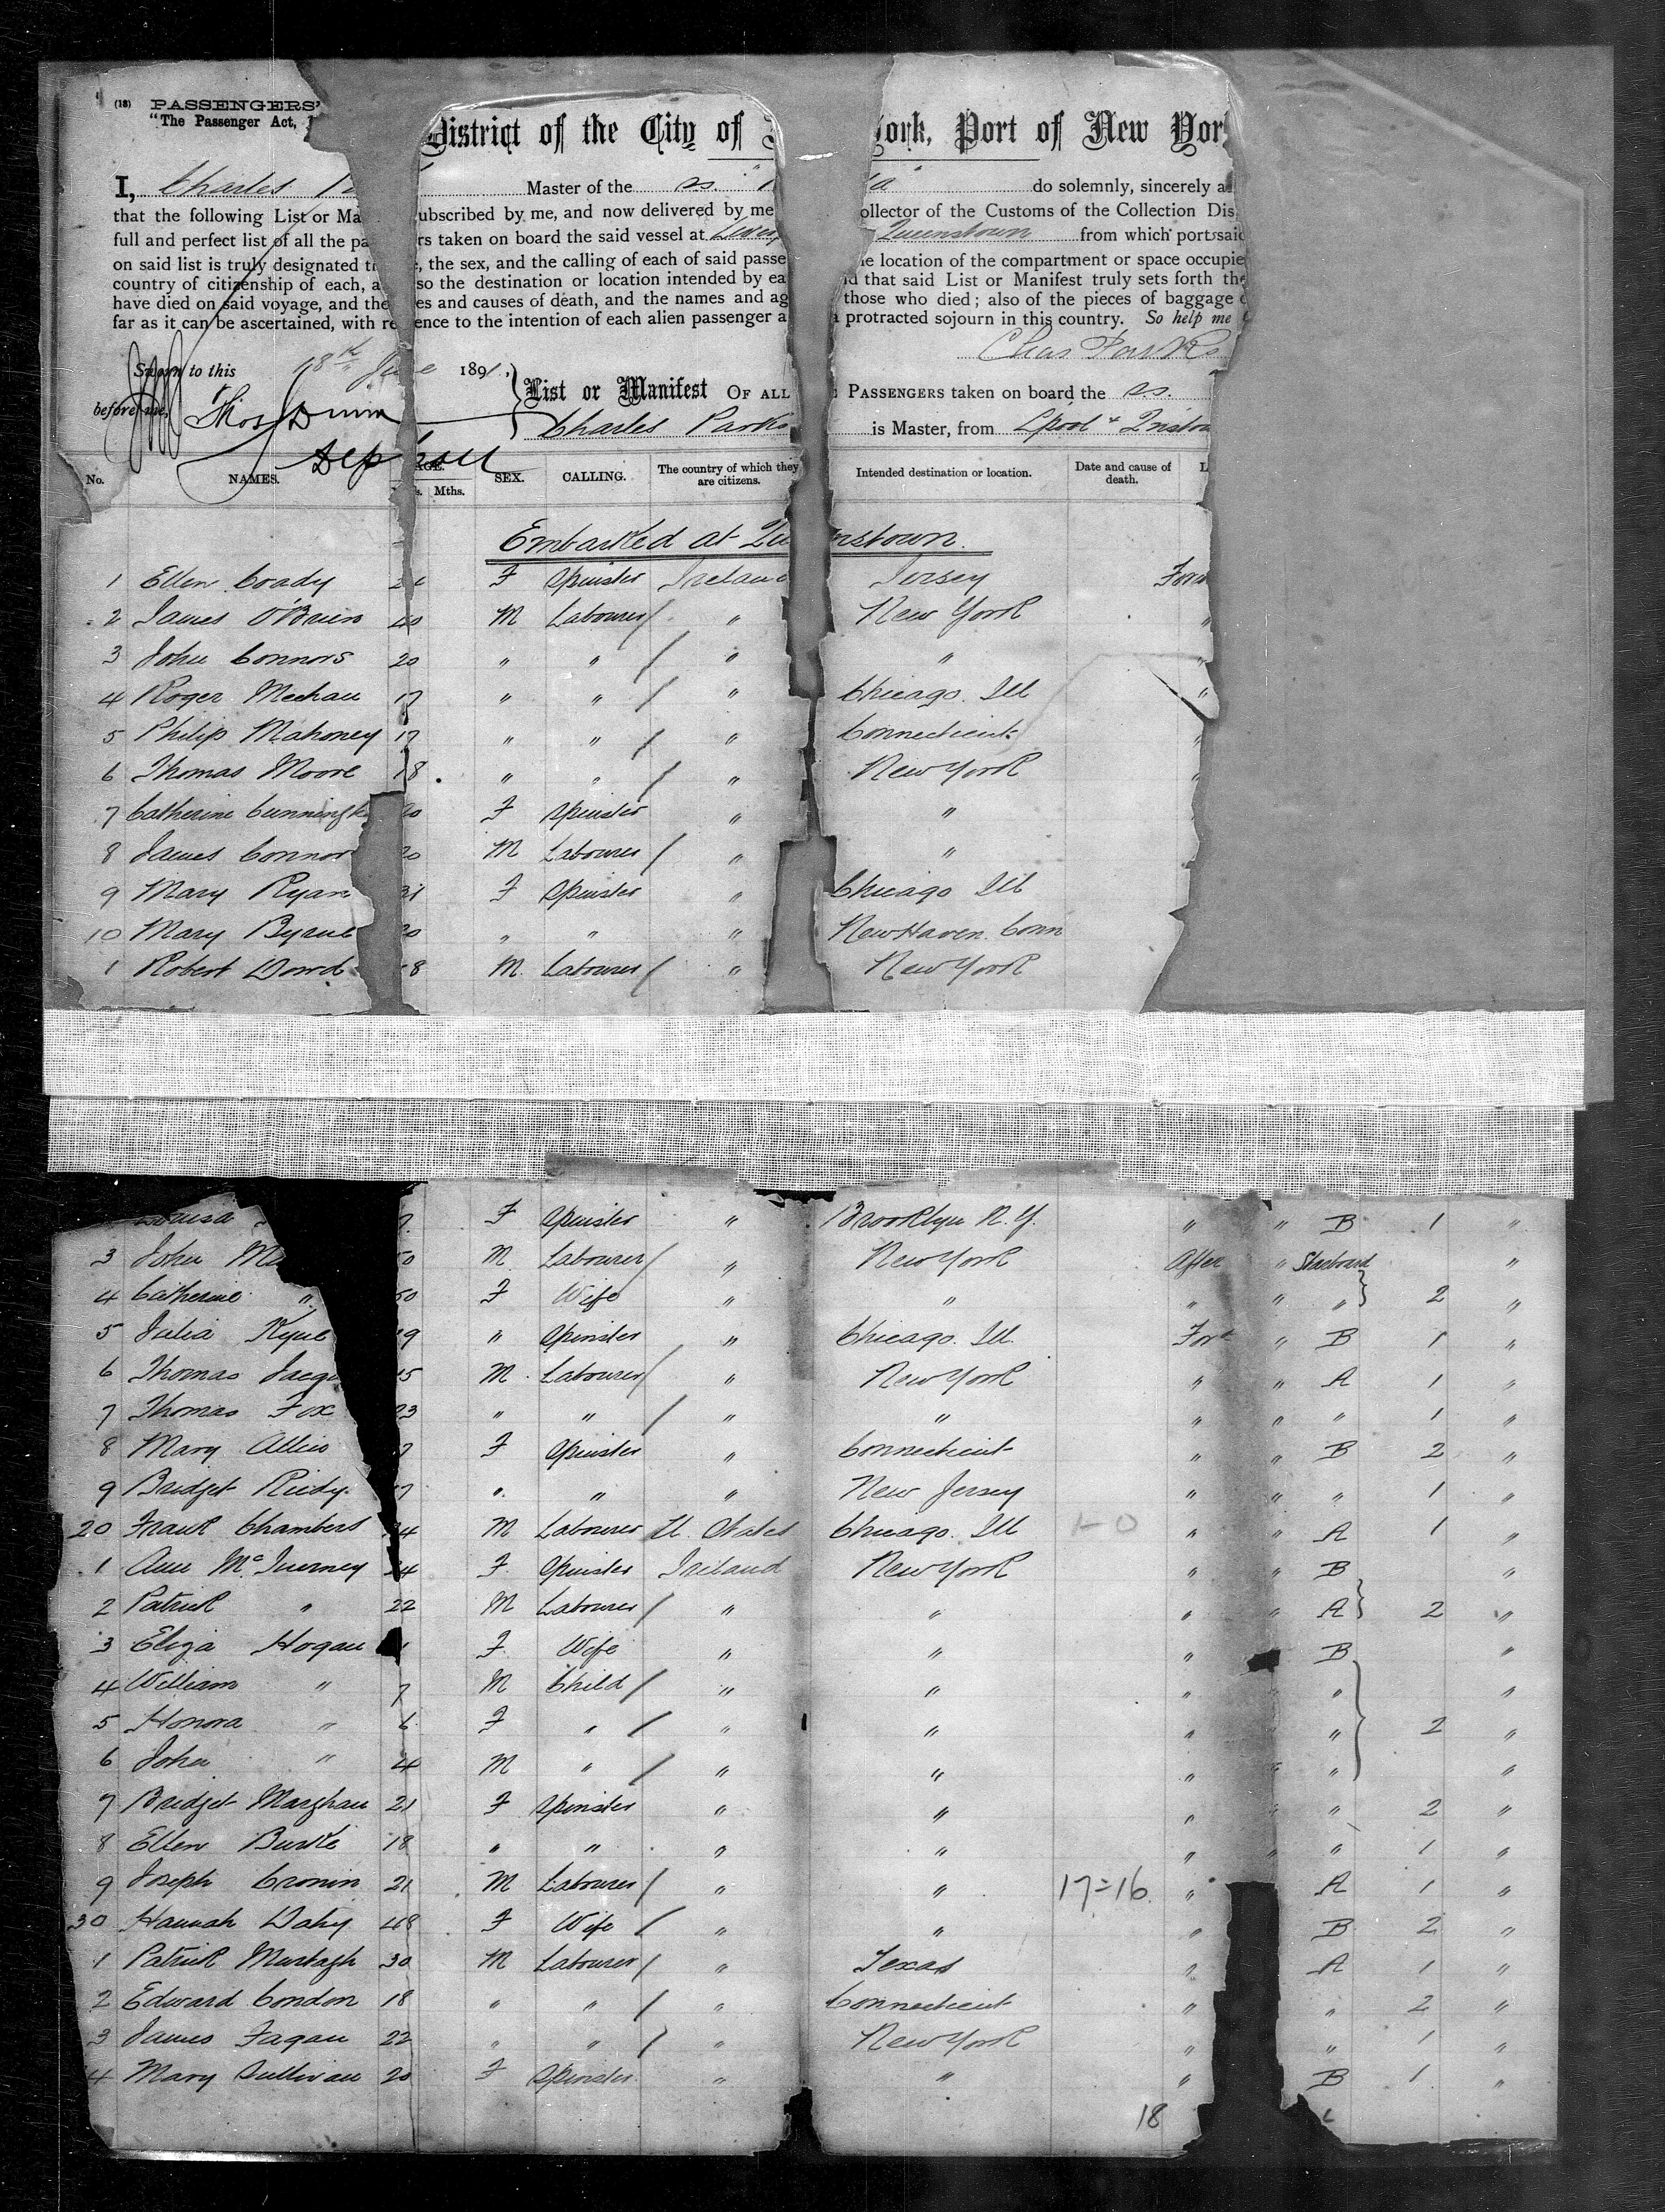 (18) PASSENGERS'
"The Passenger Act,
District of the City of York, Port of New York
I, Charles Master of the ss. do solemnly, sincerely a
that the following List or Ma ubscribed by me, and now delivered by me ollector of the Customs of the Collection Dis
full and perfect list of all the pa rs taken on board the said vessel at Queenstown from which port said
on said list is truly designated the sex, and the calling of each of said passe e location of the compartment or space occupie
country of citizenship of each, a so the destination or location intended by ea d that said List or Manifest truly sets forth the
have died on said voyage, and the es and causes of death, and the names and ag those who died; also of the pieces of baggage
far as it can be ascertained, with re ence to the intention of each alien passenger a protracted sojourn in this country. So help me
Chas Parks
Sworn to this 18th June 1891,
before me, Thos Dunn
List or Manifest OF ALL PASSENGERS taken on board the ss.
Charles Parks is Master, from Lpool & Qnstow
Dep Coll
No. NAMES. AGE. Mths. SEX. CALLING. The country of which they are citizens. Intended destination or location. Date and cause of death. L
Embarked at Queenstown.
1 Ellen Coady F Spinster Ireland Jersey For
2 James O'Brien 40 M Labourer / " New York "
3 John Connors 20 " " / " "
4 Roger Meehan 17 " " / " Chicago. Ill "
5 Philip Mahoney 17 " " / " Connecticut "
6 Thomas Moore 18 " " / " New York "
7 Catherine Cunningh 20 F Spinster " "
8 James Connor 20 M Labourer / " "
9 Mary Ryan F Spinster " Chicago Ill
10 Mary Byrne 20 " " " New Haven. Conn
1 Robert Dowd 8 M Labourer / " New York
Louisa F Spinster " Brooklyn N.Y. " " B 1 "
3 John M 50 M Labourer / " New York After " Starboard "
4 Catherine " 50 F Wife " " " " " } 2 "
5 Julia Kyne 19 " Spinster " Chicago. Ill. For " B 1 "
6 Thomas M Labourer / " New York " " A 1 "
7 Thomas Fox 23 " " / " " " " " 1 "
8 Mary F Spinster " Connecticut " " B 2 "
9 Bridget Reidy 17 " " " New Jersey " " " 1 "
20 Frank Chambers 34 M Labourer U. States Chicago. Ill " " A 1 "
1 Ann McInerney F Spinster Ireland New York " " B "
2 Patrick " 22 M Labourer / " " " " A } 2 "
3 Eliza Hogan F Wife " " " B "
4 William " 7 M Child / " " " " "
5 Honora " 6 F " / " " " " } 2 "
6 John " 4 M " / " " " " " "
7 Bridget 21 F Spinster " " " " " 2 "
8 Ellen Burke 18 " " " " " " " 1 "
9 Joseph Cronin 21 M Labourer / " " 17=16 " A 1 "
30 Hannah Daly 48 F Wife / " " " B 2 "
1 Patrick Murtagh 30 M Labourer / " Texas " A 1 "
2 Edward Condon 18 " " / " Connecticut " " 2 "
3 James Fagan 22 " " / " New York " " 1 "
4 Mary Sullivan 20 F Spinster " " " B 1 "
18